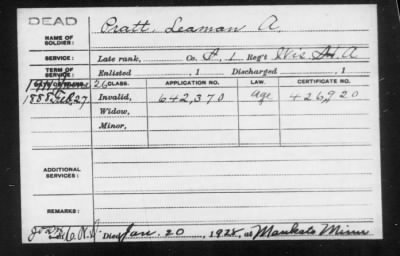 DEAD
NAME OF SOLDIER: Pratt, Leaman A.
SERVICE: Late rank, Co. A, 1 Reg't Wis H. A
TERM OF SERVICE: Enlisted , 1 Discharged , 1
CLASS. APPLICATION NO. LAW. CERTIFICATE NO.
1888 Feb 27 Invalid, 642,370 Age 426,920
Widow,
Minor,
ADDITIONAL SERVICES:
REMARKS:
Died Jan. 20, 1928, at Mankato Minn